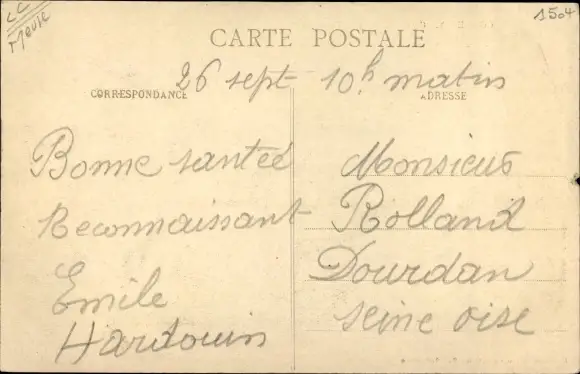 1504
CARTE POSTALE
26 sept 10h matin
CORRESPONDANCE
ADRESSE
Bonne santeé
Reconnaissant
Emile
Hardouin
Monsieur
Rolland
Dourdan
seine oise